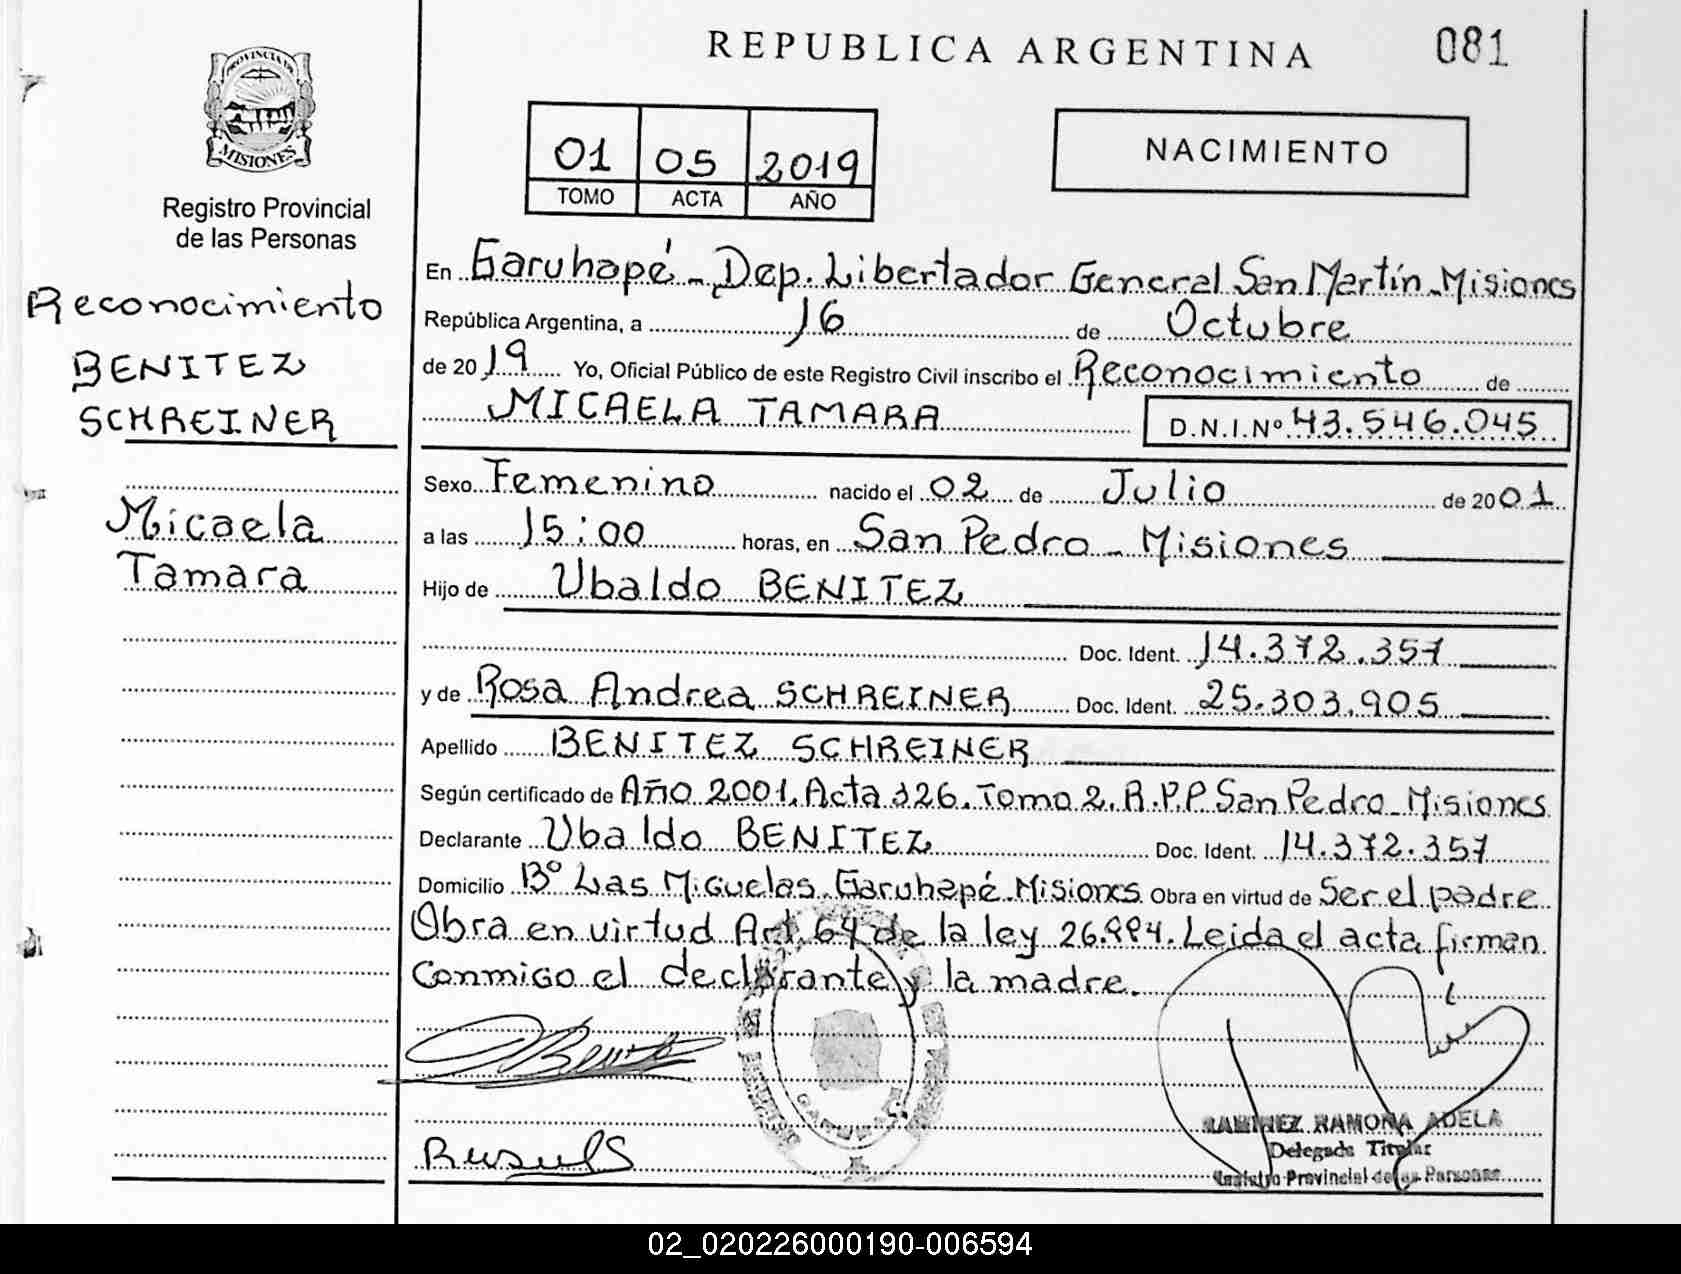 REPUBLICA ARGENTINA
081
PROVINCIA DE
MISIONES
Registro Provincial
de las Personas
01 05 2019
TOMO ACTA AÑO
NACIMIENTO
Reconocimiento
BENITEZ
SCHREINER
Micaela
Tamara
En Garuhapé - Dep. Libertador General San Martín - Misiones
República Argentina, a 16 de Octubre
de 2019 Yo, Oficial Público de este Registro Civil inscribo el Reconocimiento de
MICAELA TAMARA D.N.I.Nº 43.546.045
Sexo Femenino nacido el 02 de Julio de 2001
a las 15:00 horas, en San Pedro - Misiones
Hijo de Ubaldo BENITEZ
Doc. Ident. 14.372.357
y de Rosa Andrea SCHREINER Doc. Ident. 25.303.905
Apellido BENITEZ SCHREINER
Según certificado de Año 2001. Acta 326. Tomo 2. R.P.P San Pedro - Misiones
Declarante Ubaldo BENITEZ Doc. Ident. 14.372.357
Domicilio Bº Las Miguelas. Garuhapé. Misiones Obra en virtud de Ser el padre
Obra en virtud Art. 64 de la ley 26.994. Leida el acta firman
Conmigo el declarante y la madre.
RAMIREZ RAMONA ADELA
Delegada Titular
Registro Provincial de las Personas
02_020226000190-006594